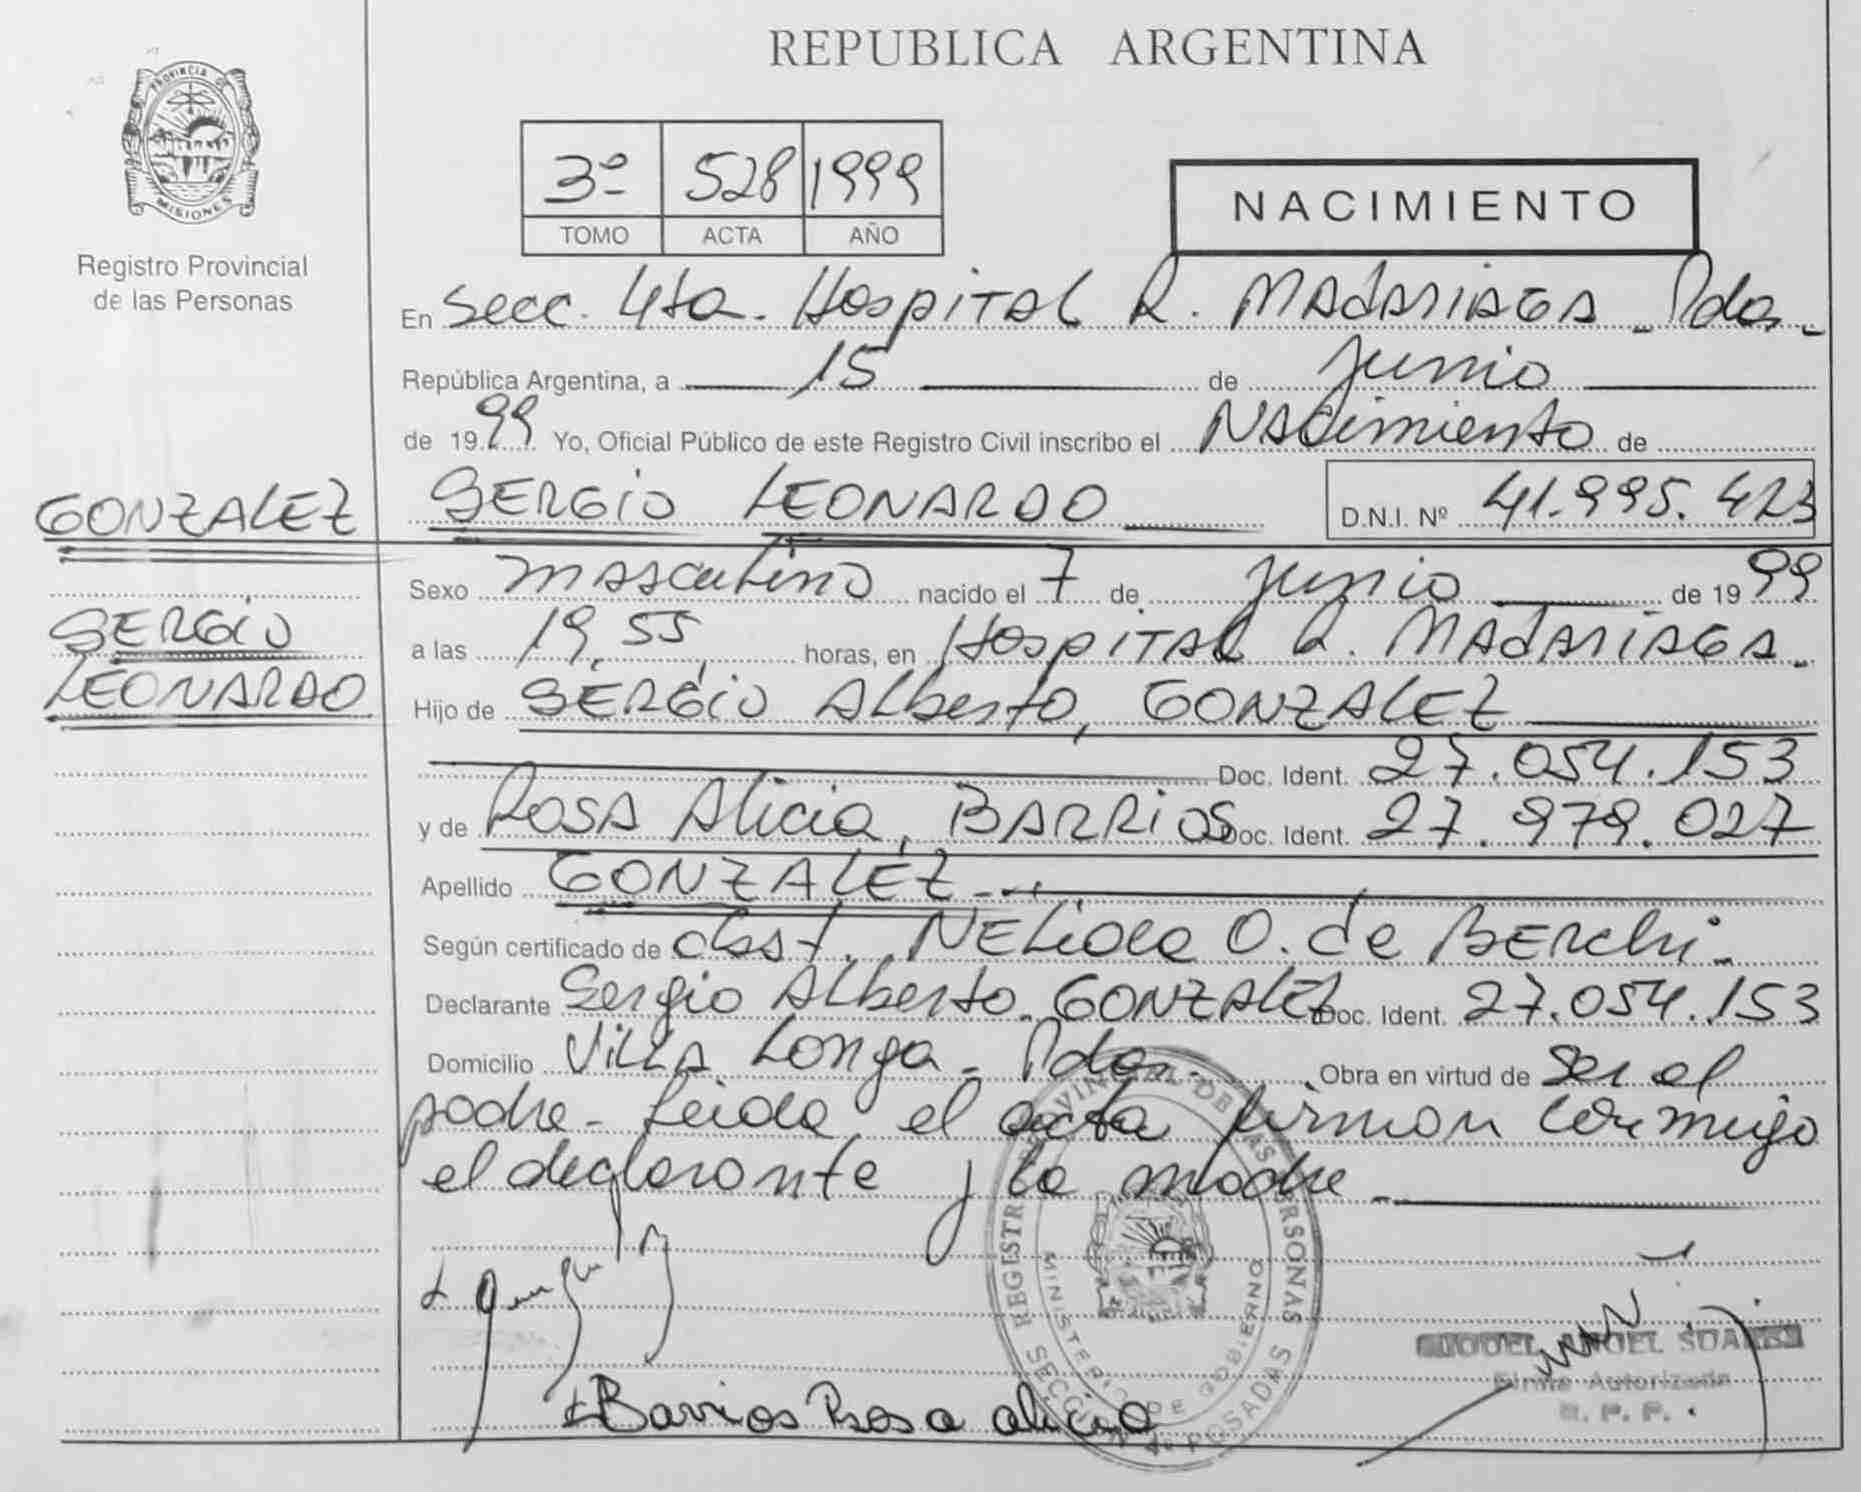 REPUBLICA ARGENTINA
PROVINCIA DE
MISIONES
Registro Provincial
de las Personas
3º 528 1999
TOMO ACTA AÑO
NACIMIENTO
En Secc. 4ta. Hospital R. MADARIAGA - Pdas.-
República Argentina, a 15 de Junio
de 1999 Yo, Oficial Público de este Registro Civil inscribo el Nacimiento de
GONZALEZ SERGIO LEONARDO D.N.I. Nº 41.995.423
Sexo masculino nacido el 7 de Junio de 1999
SERGIO a las 19,55, horas, en Hospital R. MADARIAGA.
LEONARDO Hijo de SERGIO Alberto, GONZALEZ
Doc. Ident. 27.054.153
y de ROSA Alicia, BARRIOS Doc. Ident. 27.979.027
Apellido GONZALEZ -
Según certificado de obst. NELIDA O. de BERCHI -
Declarante Sergio Alberto GONZALEZ Doc. Ident. 27.054.153
Domicilio Villa Longa - Pdas. Obra en virtud de Ser el
padre - leida el acta firman conmigo
el declarante y la madre -
REGISTRO PROVINCIAL DE LAS PERSONAS
MINISTERIO DE GOBIERNO
POSADAS
MIGUEL ANGEL SUAREZ
Firma Autorizada
R. P. P.
Barrios Rosa alicia